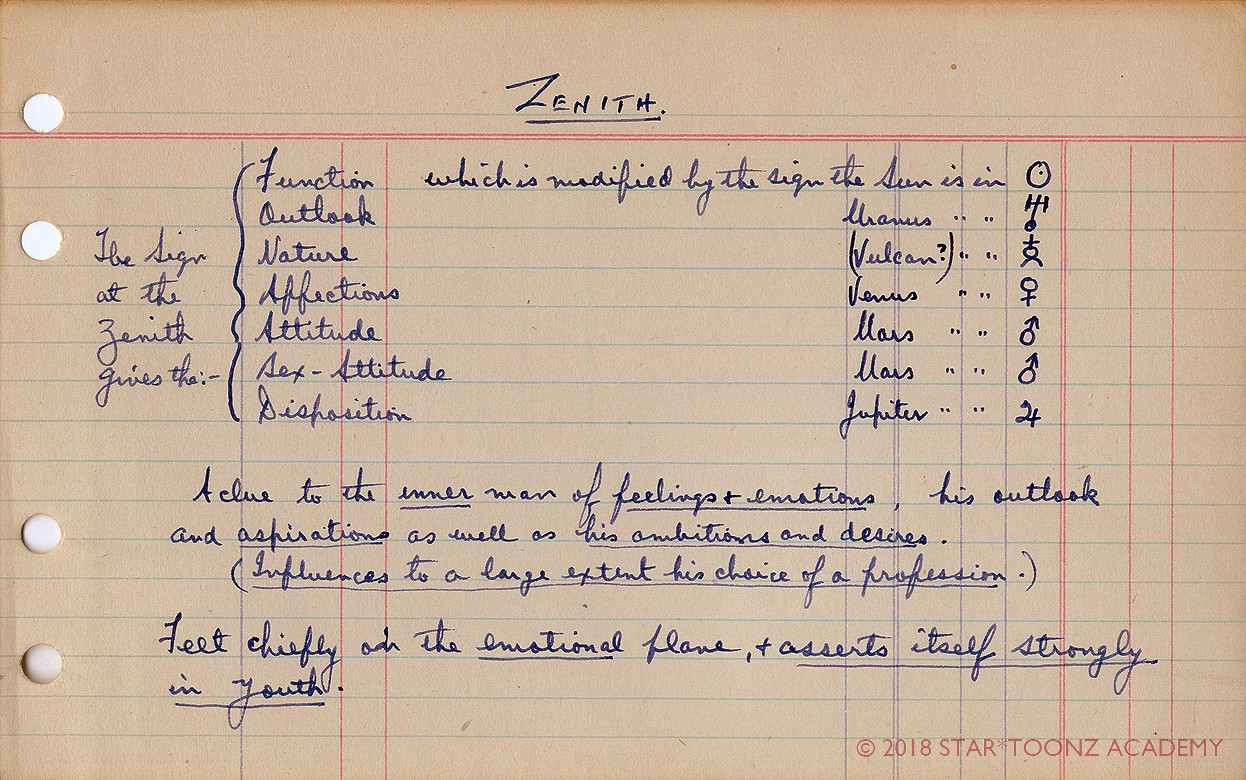 ZENITH.
Function which is modified by the sign the Sun is in ☉
Outlook Uranus " " ♅
The Sign Nature (Vulcan?) " "
at the Affections Venus " " ♀
Zenith Attitude Mars " " ♂
gives the:- Sex-Attitude Mars " " ♂
Disposition Jupiter " " ♃
A clue to the inner man of feelings + emotions, his outlook
and aspirations as well as his ambitions and desires.
(Influences to a large extent his choice of a profession.)
Felt chiefly on the emotional plane, + asserts itself strongly
in youth.
© 2018 STAR*TOONZ ACADEMY